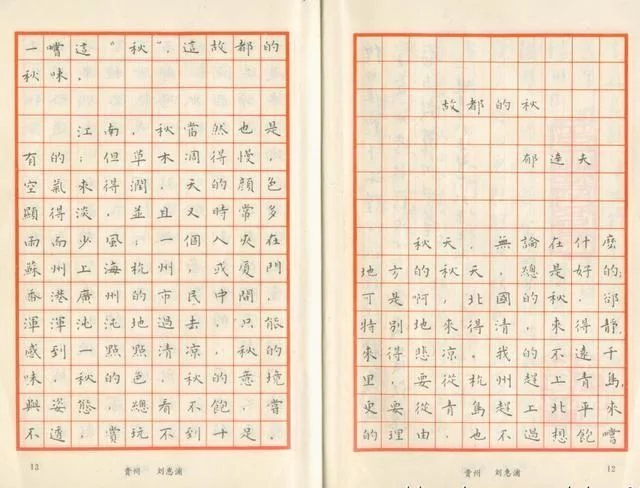 故都的秋
郁達夫
秋天，無論在什麼
地方的秋天，總是好的；
可是啊，北國的秋，卻
特別地來得清，來得靜，
來得悲凉。我的不遠千
里，要從杭州趕上青島，
更要從青島趕上北平來
的理由，也不過想飽嚐
12
貴州 刘惠浦
一嚐這“秋”，這故都的
秋味。
江南，秋當然也是
有的；但草木凋得慢，
空氣來得潤，天的顏色
顯得淡，並且又時常多
雨而少風；一個人夾在
蘇州上海杭州，或廈門
香港廣州的市民中間，
渾渾沌沌地過去，只能
感到一點點清凉，秋的
味，秋的色，秋的意境
與姿態，總看不飽，嘗
不透，賞玩不到十足。
13
貴州 刘惠浦